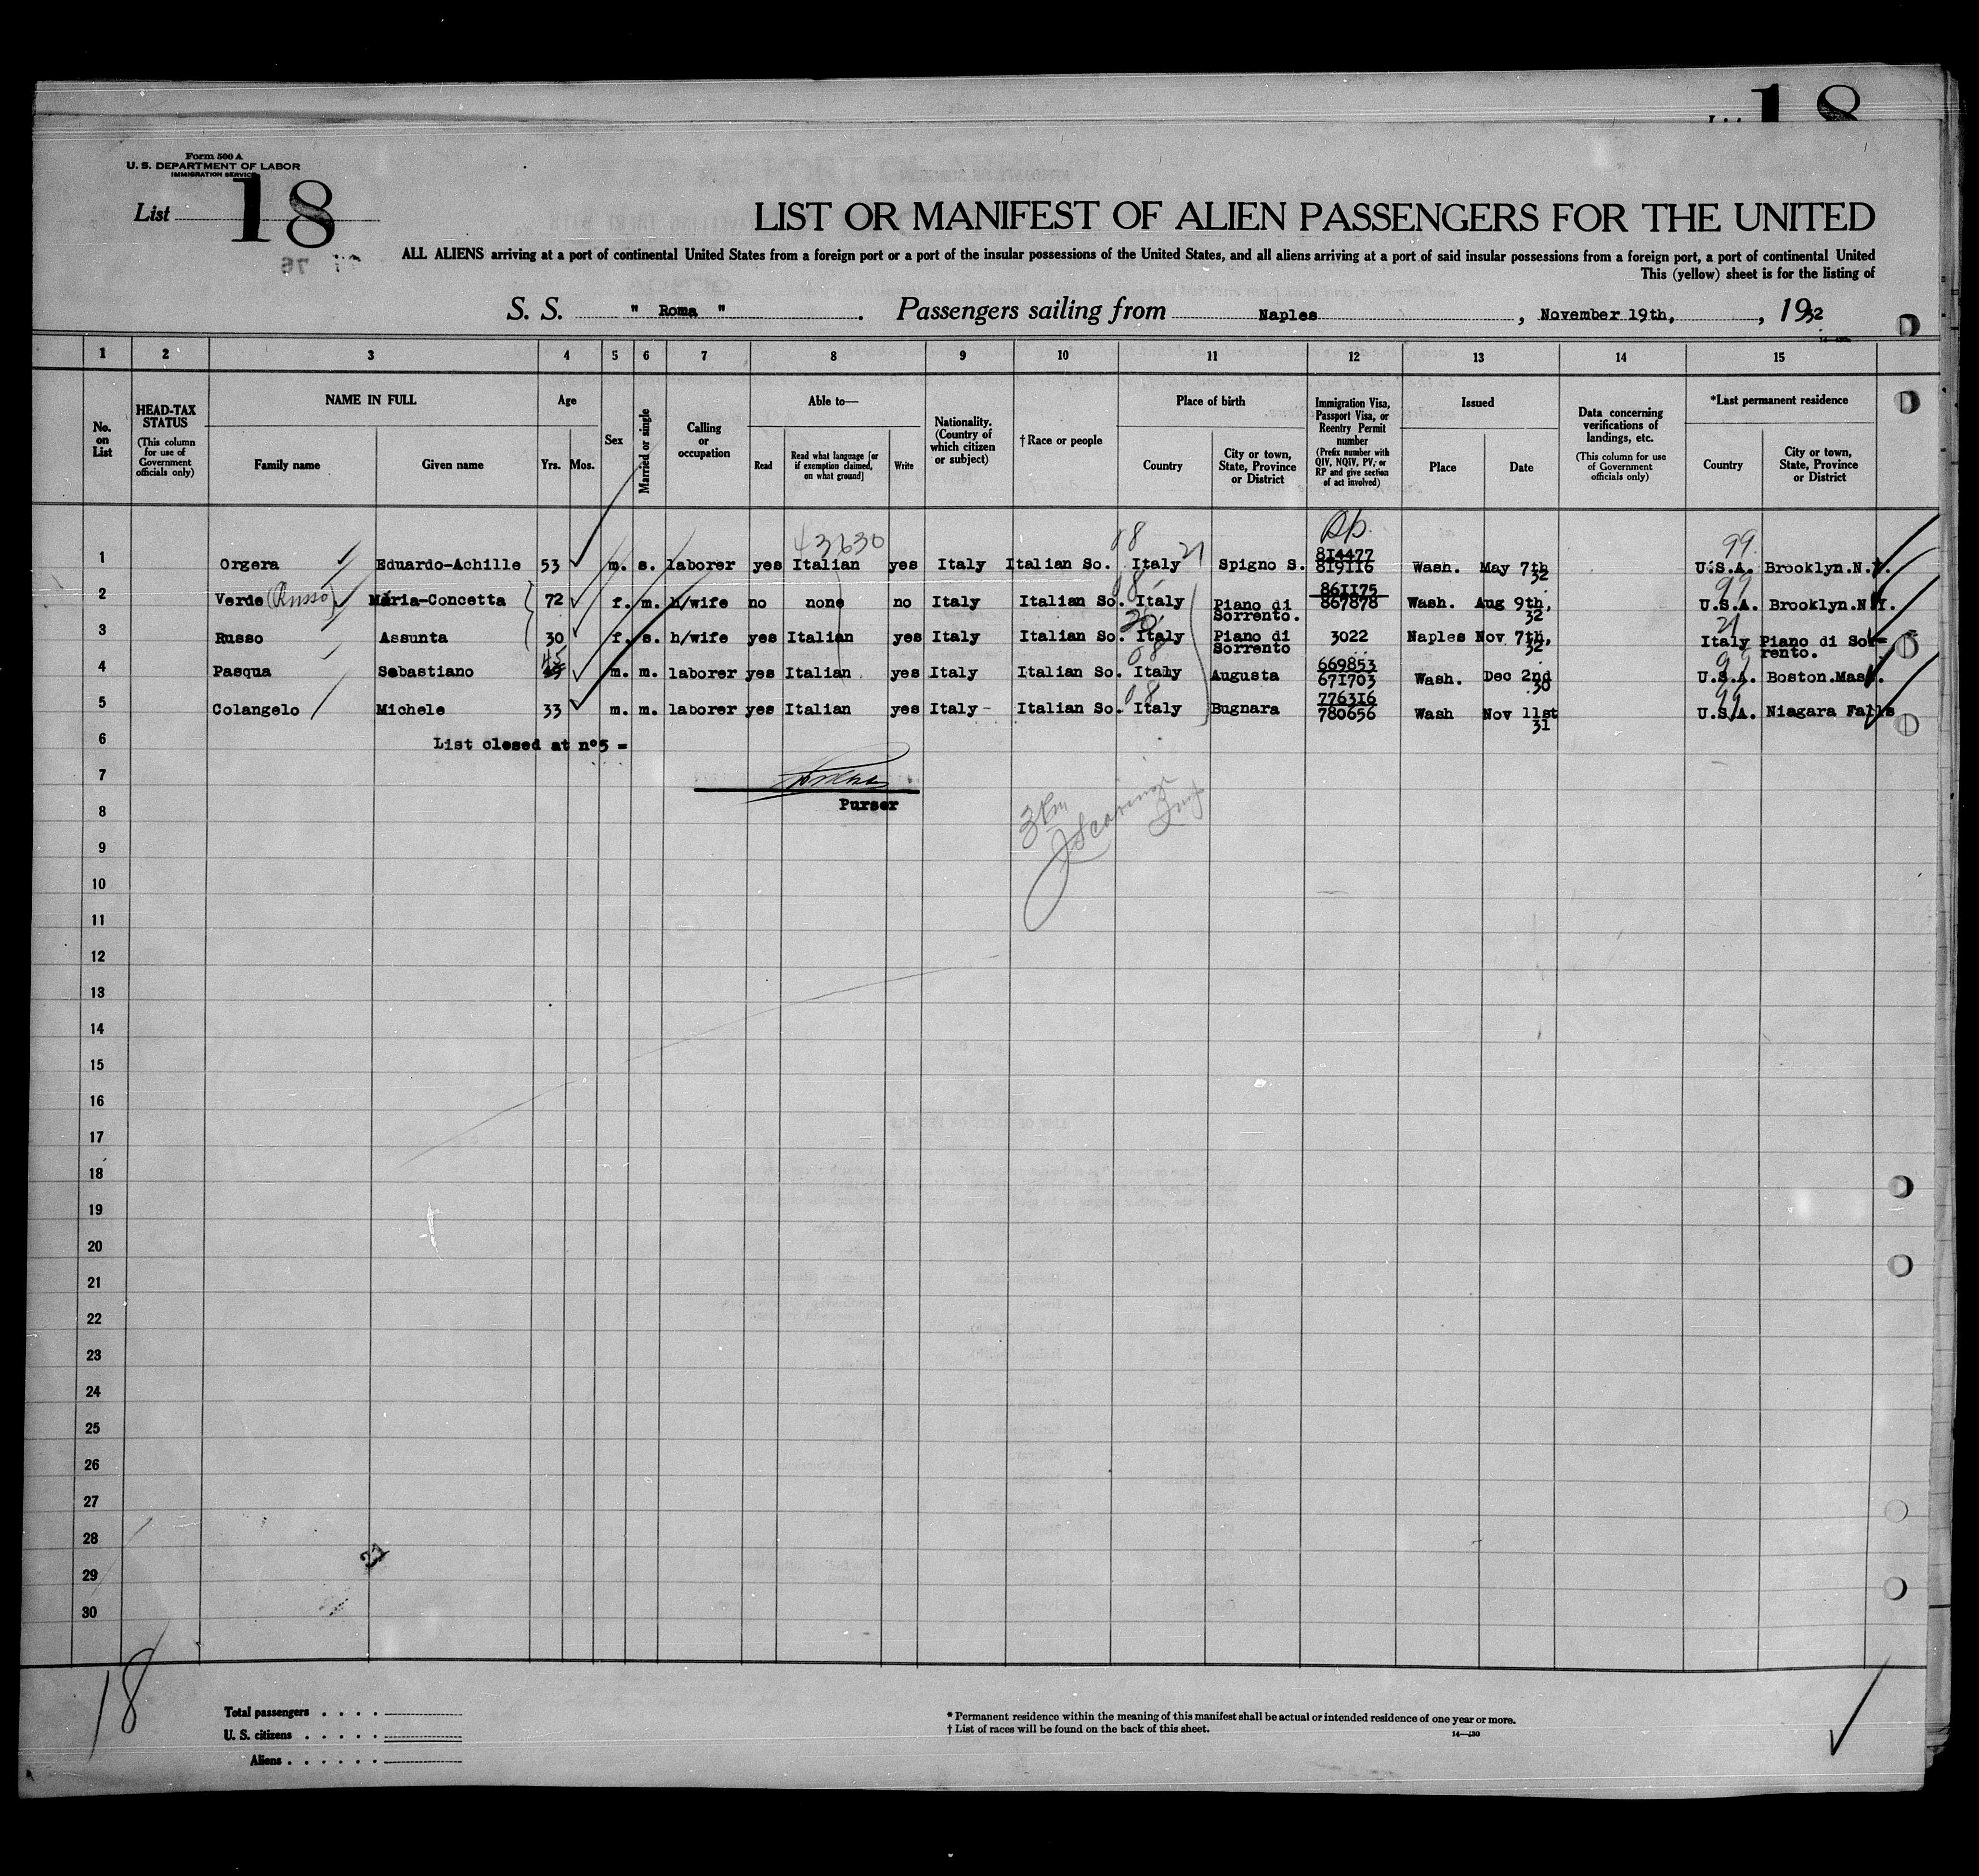 18
Form 500 A
U. S. DEPARTMENT OF LABOR
IMMIGRATION SERVICE
List 18
LIST OR MANIFEST OF ALIEN PASSENGERS FOR THE UNITED
ALL ALIENS arriving at a port of continental United States from a foreign port or a port of the insular possessions of the United States, and all aliens arriving at a port of said insular possessions from a foreign port, a port of continental United
This (yellow) sheet is for the listing of
S. S. " Roma ". Passengers sailing from Naples, November 19th, , 1932
1 2 3 4 5 6 7 8 9 10 11 12 13 14 15
No. on List
HEAD-TAX STATUS (This column for use of Government officials only)
NAME IN FULL
Family name Given name
Age
Yrs. Mos.
Sex
Married or single
Calling or occupation
Able to—
Read
Read what language [or if exemption claimed, on what ground]
Write
Nationality. (Country of which citizen or subject)
†Race or people
Place of birth
Country
City or town, State, Province or District
Immigration Visa, Passport Visa, or Reentry Permit number (Prefix number with QIV, NQIV, PV, or RP and give section of act involved)
Issued
Place Date
Data concerning verifications of landings, etc. (This column for use of Government officials only)
*Last permanent residence
Country
City or town, State, Province or District
43630
1 Orgera Eduardo-Achille 53 m. s. laborer yes Italian yes Italy Italian So. Italy 21 Spigno S. 814477 819116 Wash. May 7th 32 99 U.S.A. Brooklyn.N.Y.
2 Verde (Russo) Maria-Concetta 72 f. m. h/wife no none no Italy Italian So. Italy Piano di Sorrento. 861175 867878 Wash. Aug 9th, 32 99 U.S.A. Brooklyn.N.Y.
3 Russo Assunta 30 f. s. h/wife yes Italian yes Italy Italian So. Italy Piano di Sorrento 3022 Naples Nov 7th, 32 21 Italy Piano di Sor=rento.
4 Pasqua Sebastiano 45 m. m. laborer yes Italian yes Italy Italian So. 08 Italy Augusta 669853 671703 Wash. Dec 2nd 30 99 U.S.A. Boston.Mass.
5 Colangelo Michele 33 m. m. laborer yes Italian yes Italy- Italian So. 08 Italy Bugnara 776316 780656 Wash Nov 11st 31 99 U.S.A. Niagara Falls
6 List closed at n°5 =
7
Purser
8
9
10
11
12
13
14
15
16
17
18
19
20
21
22
23
24
25
26
27
28
21
29
30
18
Total passengers . . . .
U. S. citizens . . . . .
Aliens . . . . . .
* Permanent residence within the meaning of this manifest shall be actual or intended residence of one year or more.
† List of races will be found on the back of this sheet.
14—430